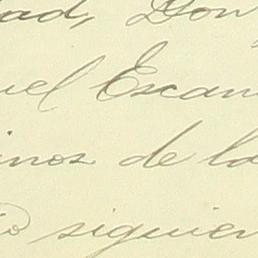 ad, Don
uel Escan
inos de la
io siguien